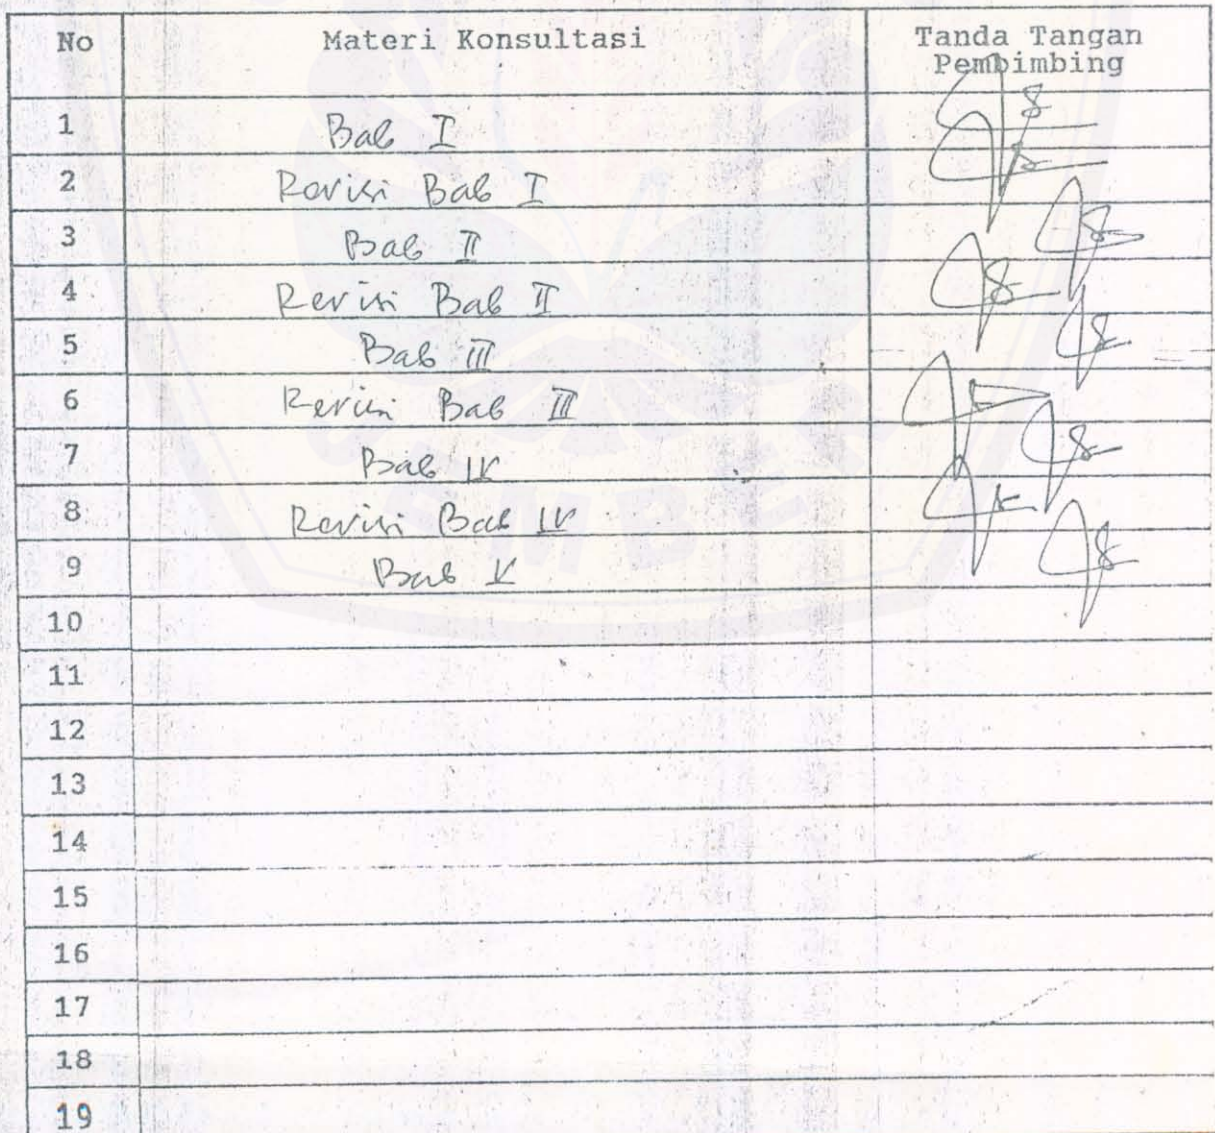 No Materi Konsultasi Tanda Tangan
Pembimbing
1 Bab I
2 Revisi Bab I
3 Bab II
4 Revisi Bab II
5 Bab III
6 Revisi Bab III
7 Bab IV
8 Revisi Bab IV
9 Bab V
10
11
12
13
14
15
16
17
18
19